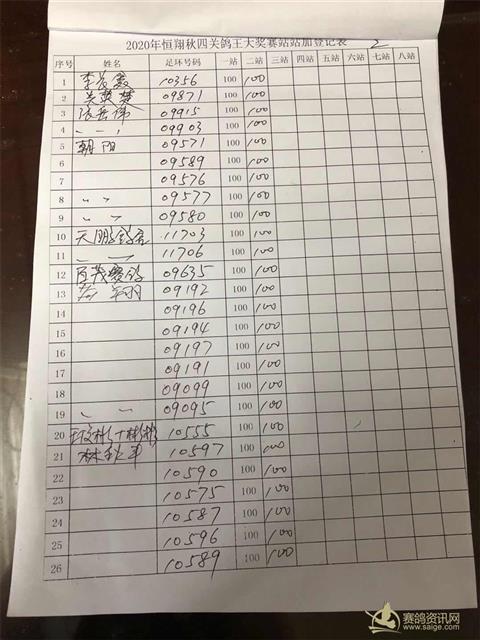 2020年恒翔秋四关鸽王大奖赛站站加登记表 2
序号 姓名 足环号码 一站 二站 三站 四站 五站 六站 七站 八站
1 10356 100 100
2 09871 100 100
3 张岳伟 09915 100 100
4 〃 〃 09903 100 100
5 朝阳 09571 100 100
6 09589 100 100
7 09576 100 100
8 〃 〃 09577 100 100
9 〃 〃 09580 100 100
10 天鹏鸽舍 11703 100 100
11 〃 〃 11706 100 100
12 赛鸽 09635 100 100
13 翔 09192 100 100
14 09196 100 100
15 09194 100 100
16 09197 100 100
17 09191 100 100
18 09099 100 100
19 〃 〃 09095 100 100
20 10555 100 100
21 林秋丰 10597 100 100
22 10590 100 100
23 10575 100 100
24 10587 100 100
25 10596 100 100
26 10589 100 100
赛鸽资讯网
www.saige.com